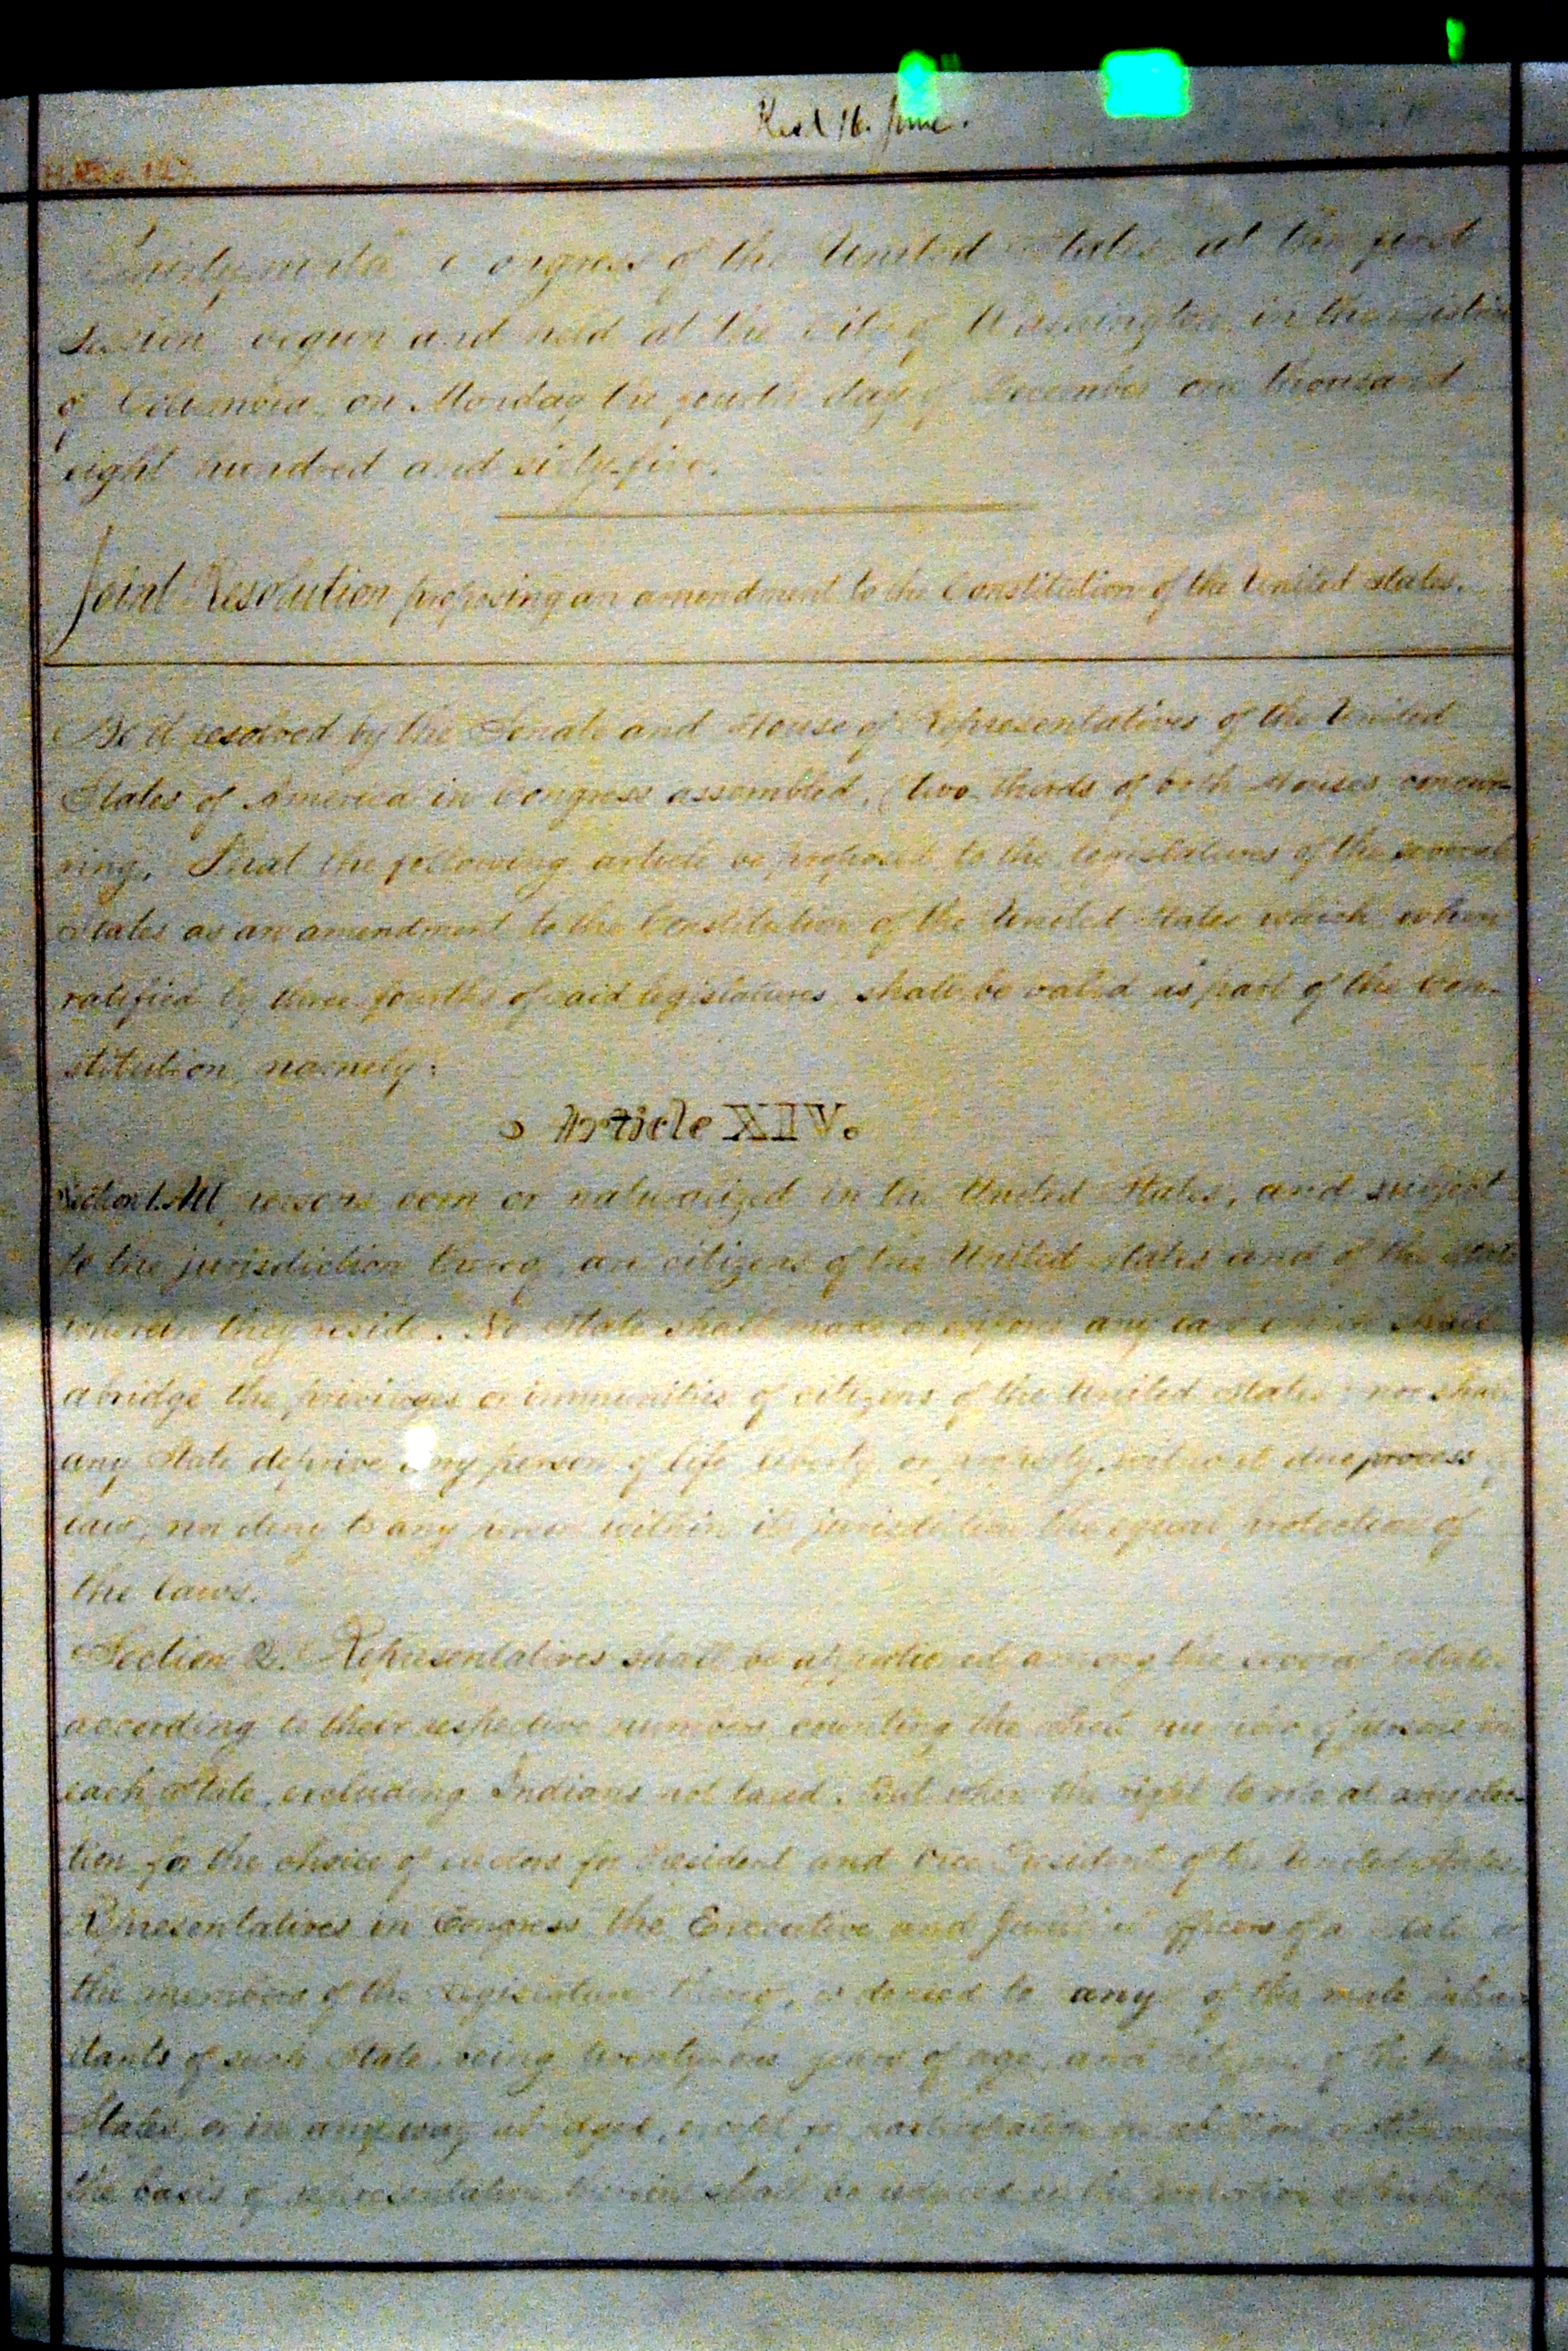 Rec'd 16. June.
H. Res. 127
Thirty-ninth Congress of the United States, at the first
session begun and held at the City of Washington, in the District
of Columbia, on Monday the fourth day of December one thousand
eight hundred and sixty-five.
Joint Resolution proposing an amendment to the Constitution of the United States.
Be it resolved by the Senate and House of Representatives of the United
States of America in Congress assembled, (two thirds of both Houses concur-
ring, That the following article be proposed to the legislatures of the several
States as an amendment to the Constitution of the United States which when
ratified by three fourths of said legislatures, shall be valid as part of the Con-
stitution, namely:
Article XIV.
Section 1. All persons born or naturalized in the United States, and subject
to the jurisdiction thereof, are citizens of the United States and of the State
wherein they reside. No State shall make or enforce any law which shall
abridge the privileges or immunities of citizens of the United States; nor shall
any State deprive any person of life liberty or property, without due process of
law, nor deny to any person within its jurisdiction the equal protection of
the laws.
Section 2. Representatives shall be apportioned among the several States
according to their respective numbers, counting the whole number of persons in
each State, excluding Indians not taxed. But when the right to vote at any elec-
tion for the choice of electors for President and Vice President of the United States,
Representatives in Congress the Executive and Judicial officers of a State or
the members of the Legislature thereof, is denied to any of the male inhab-
itants of such State, being twenty-one years of age, and citizens of the United
States, or in any way abridged, except for participation in rebellion or other crime
the basis of representation therein shall be reduced in the proportion which the